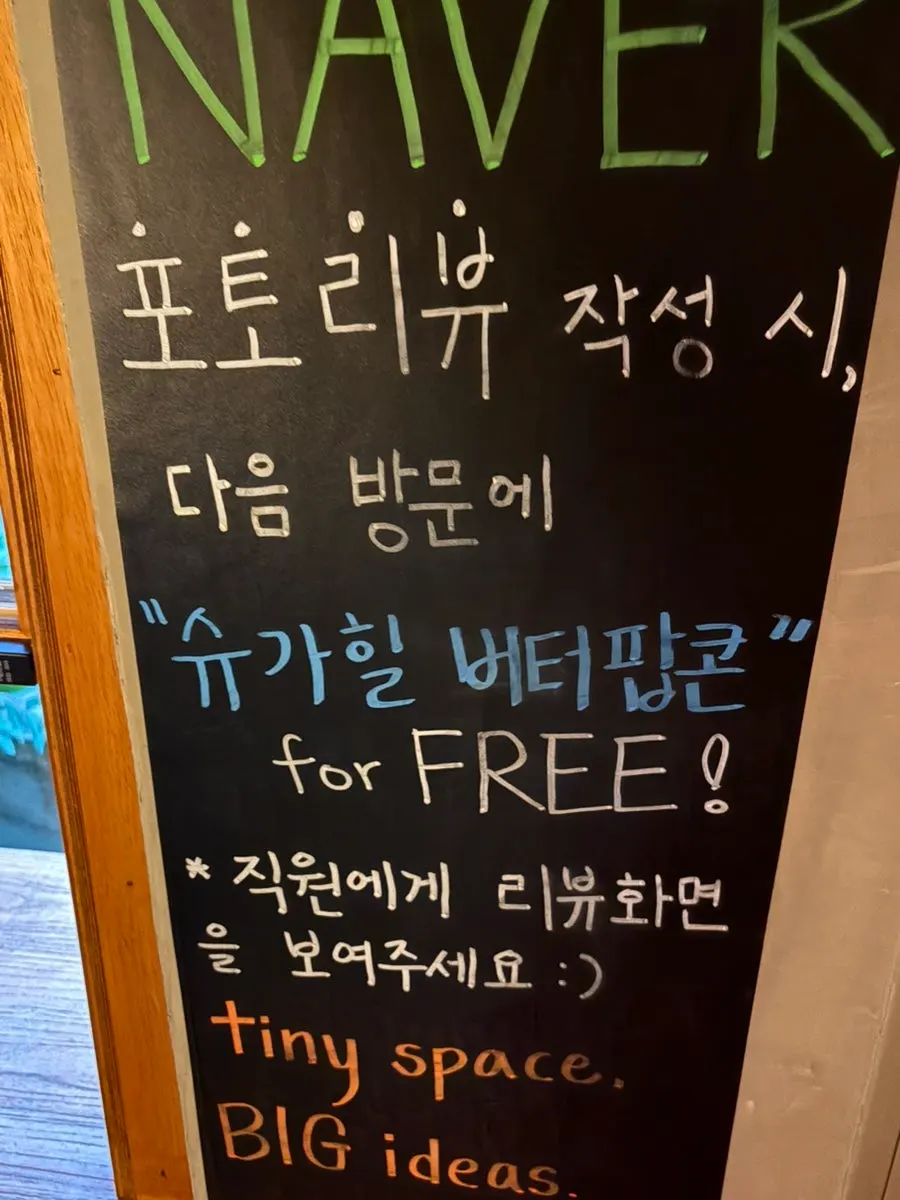 NAVER
포토리뷰 작성 시,
다음 방문에
"슈가힐 버터팝콘"
for FREE!
* 직원에게 리뷰화면
을 보여주세요 :)
tiny space.
BIG ideas.